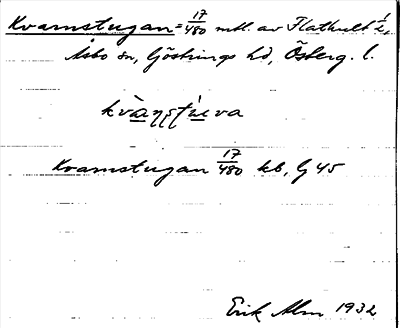 Kvarnstugan = 17/480 mtl. av Flathult 1/2,
Asbo sn, Göstrings hd, Österg. l.
Kvarnstugan 17/480 kb, G 45
Erik Alm 1932